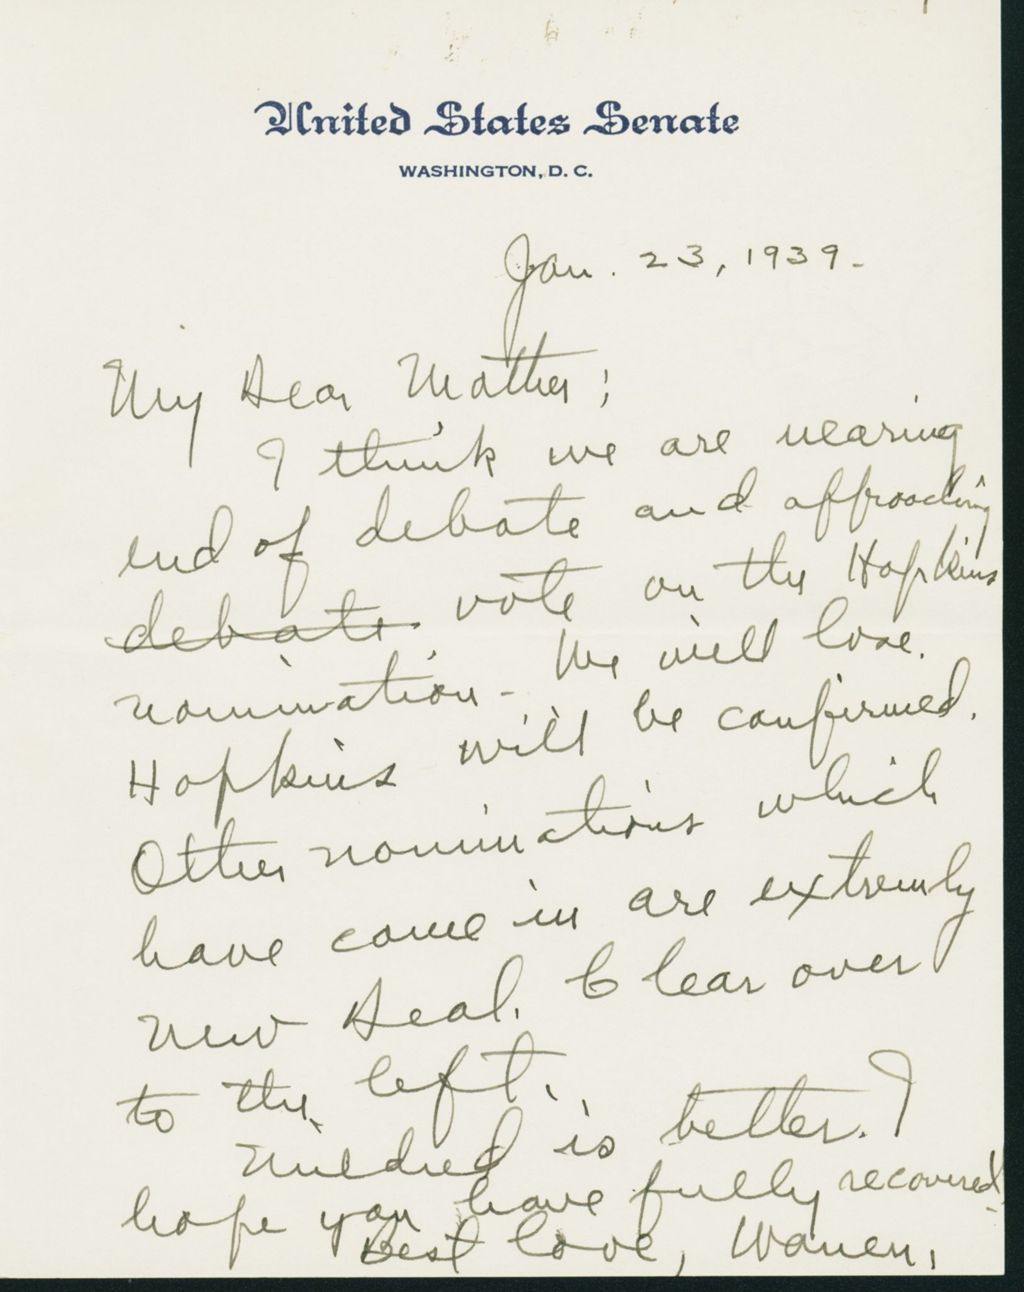 United States Senate
WASHINGTON, D. C.
Jan. 23, 1939.
My Dear Mother;
I think we are nearing
end of debate and approaching
debate vote on the Hopkins
nomination - We will lose.
Hopkins will be confirmed.
Other nominations which
have come in are extremly
New Deal. Clear over
to the left.
Mildred is better. I
hope you have fully recovered.
Best love, Warren.